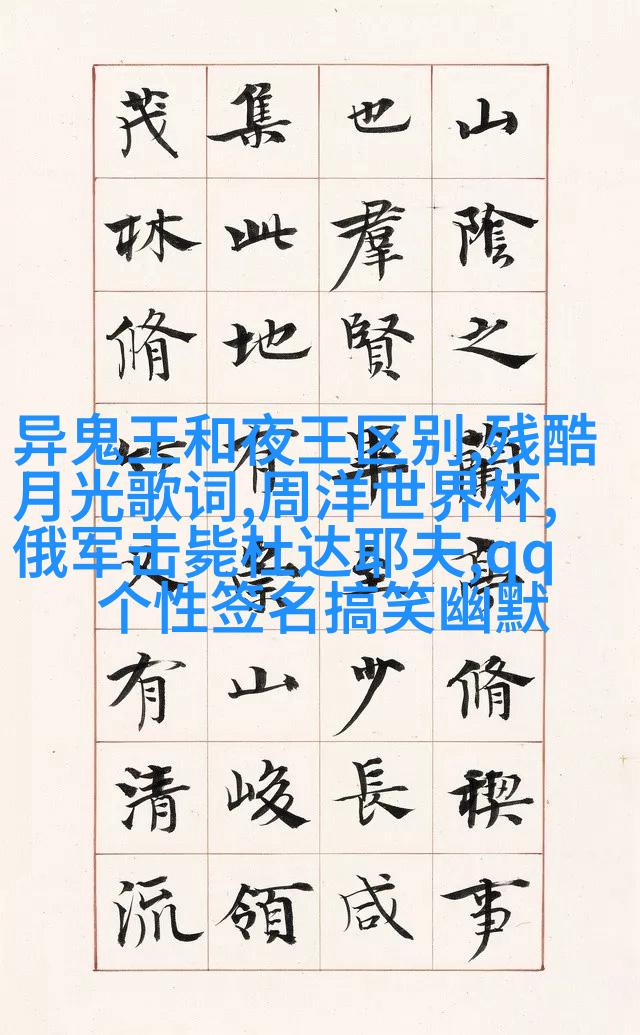 山陰之蘭亭脩稧事
也羣賢畢至少長咸
集此地有崇山峻領
茂林脩竹又有清流
异鬼王和夜王区别,残酷
月光歌词,周洋世界杯,
俄军击毙杜达耶夫,qq
个性签名搞笑幽默